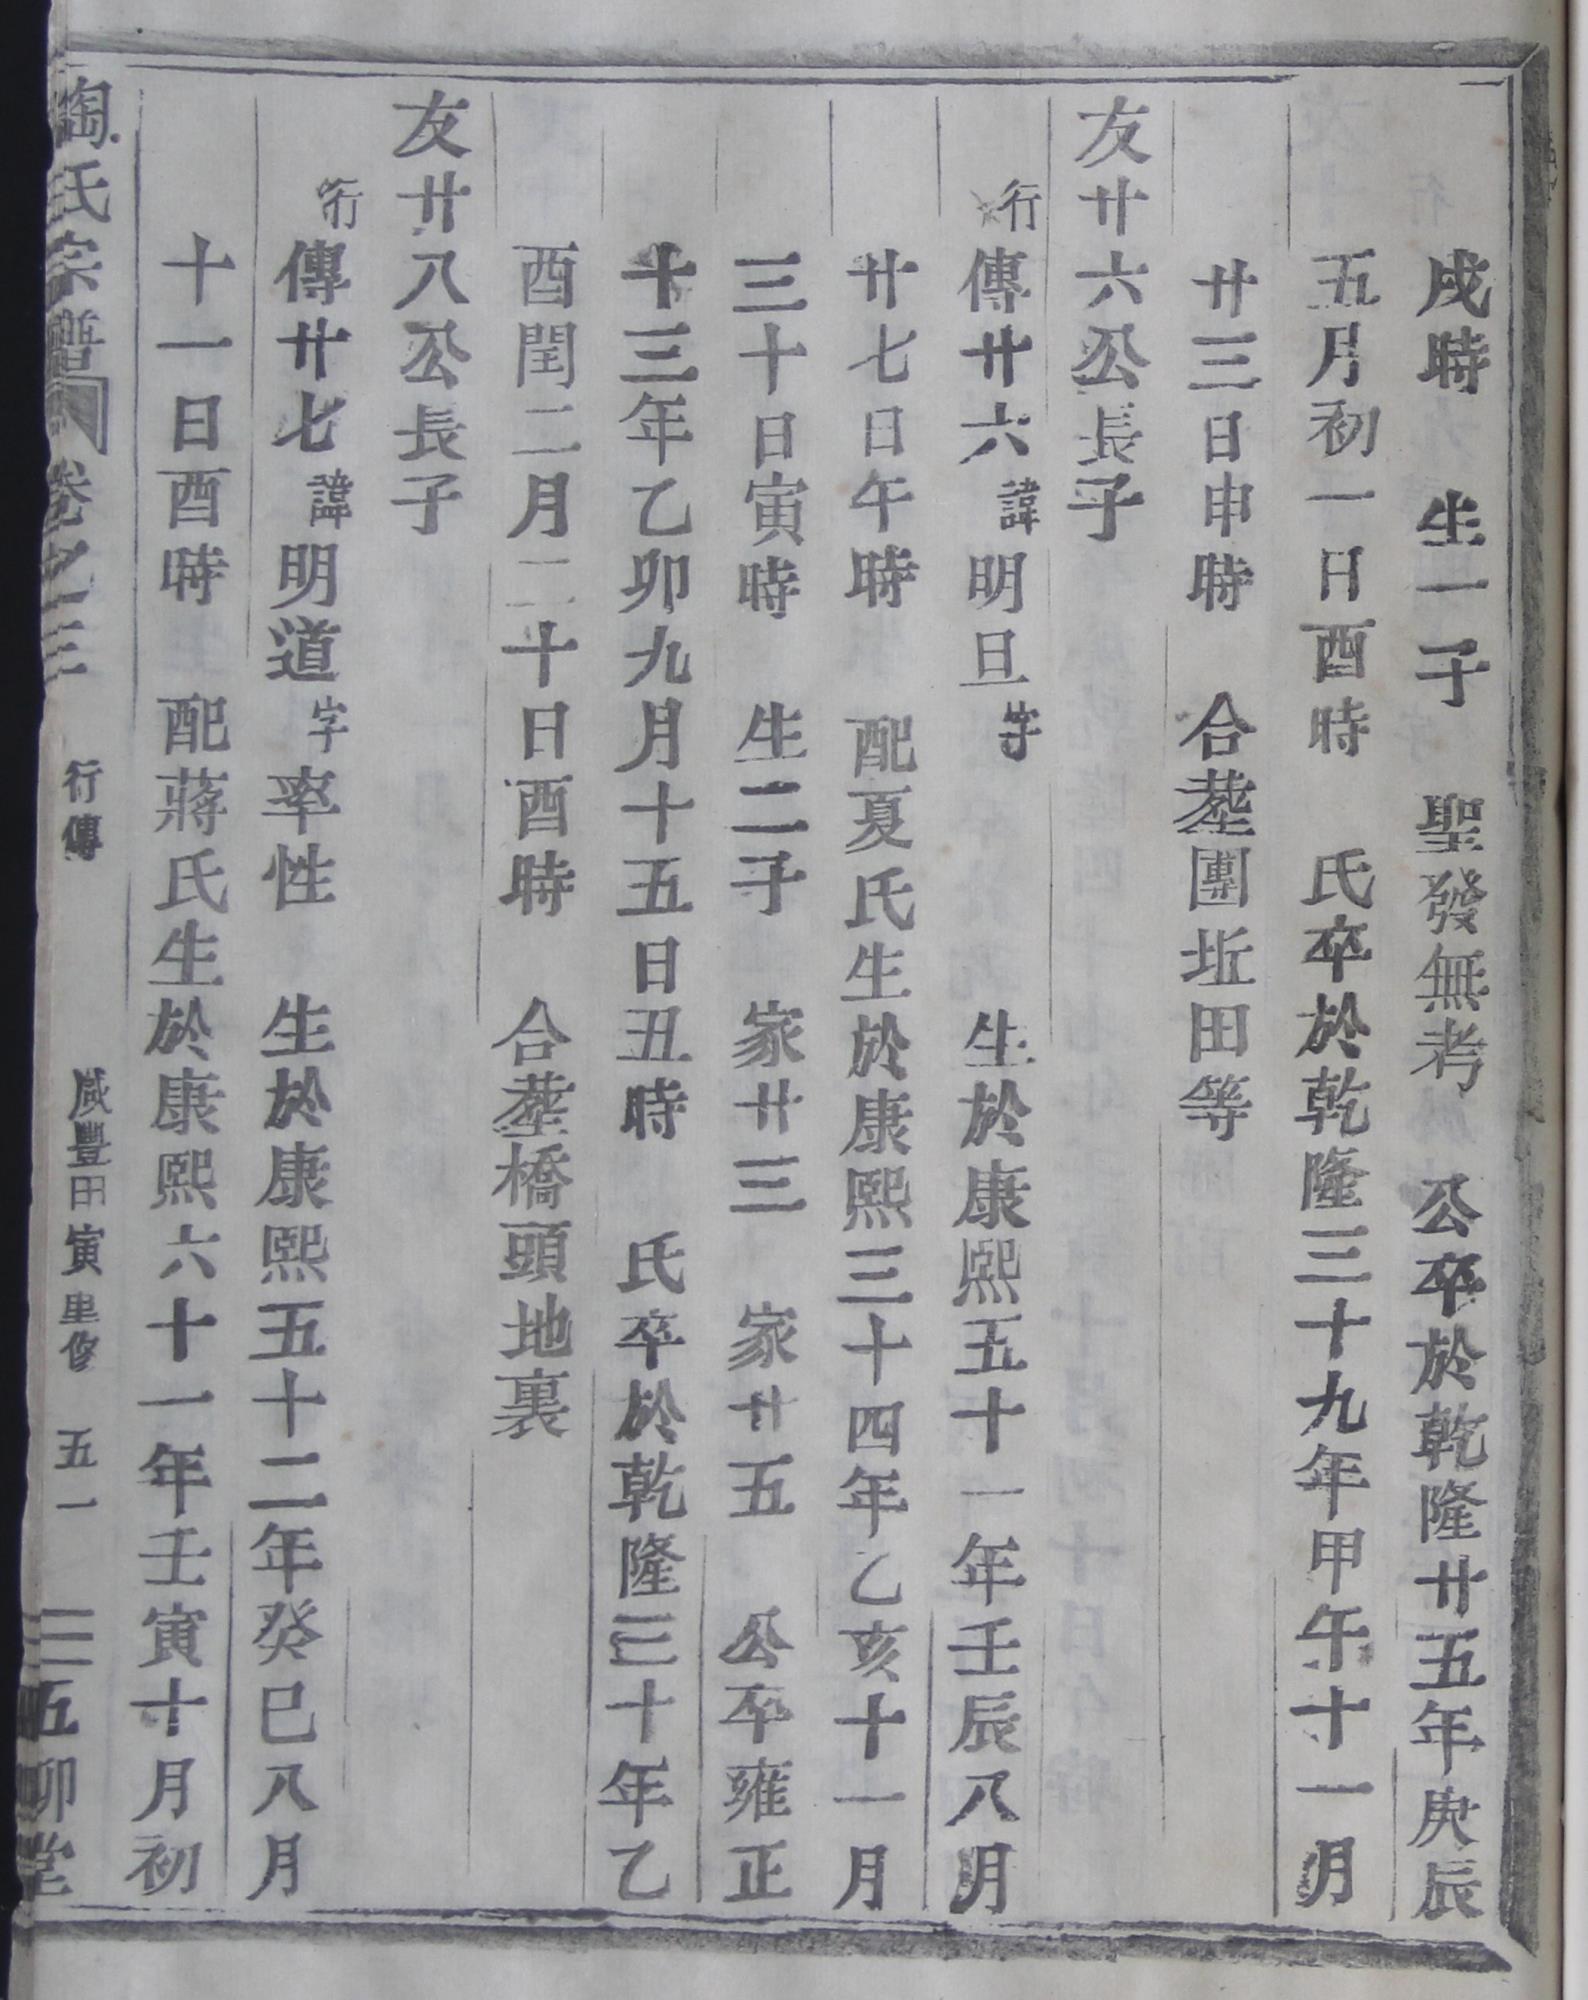 戌時 生一子 聖發無考 公卒於乾隆廿五年庚辰
五月初一日酉時 氏卒於乾隆三十九年甲午十一月
廿三日申時 合塟團坵田等
友廿六公長子
行傳廿六諱明旦字 生於康熙五十一年壬辰八月
廿七日午時 配夏氏生於康熙三十四年乙亥十一月
三十日寅時 生二子 家廿三 家廿五 公卒雍正
十三年乙卯九月十五日丑時 氏卒於乾隆三十年乙
酉閏二月二十日酉時 合塟橋頭地裏
友廿八公長子
行傳廿七諱明道字率性 生於康熙五十二年癸巳八月
十一日酉時 配蔣氏生於康熙六十一年壬寅十月初
陶氏宗譜 卷之三 行傳 咸豐甲寅重修 五一 五柳堂